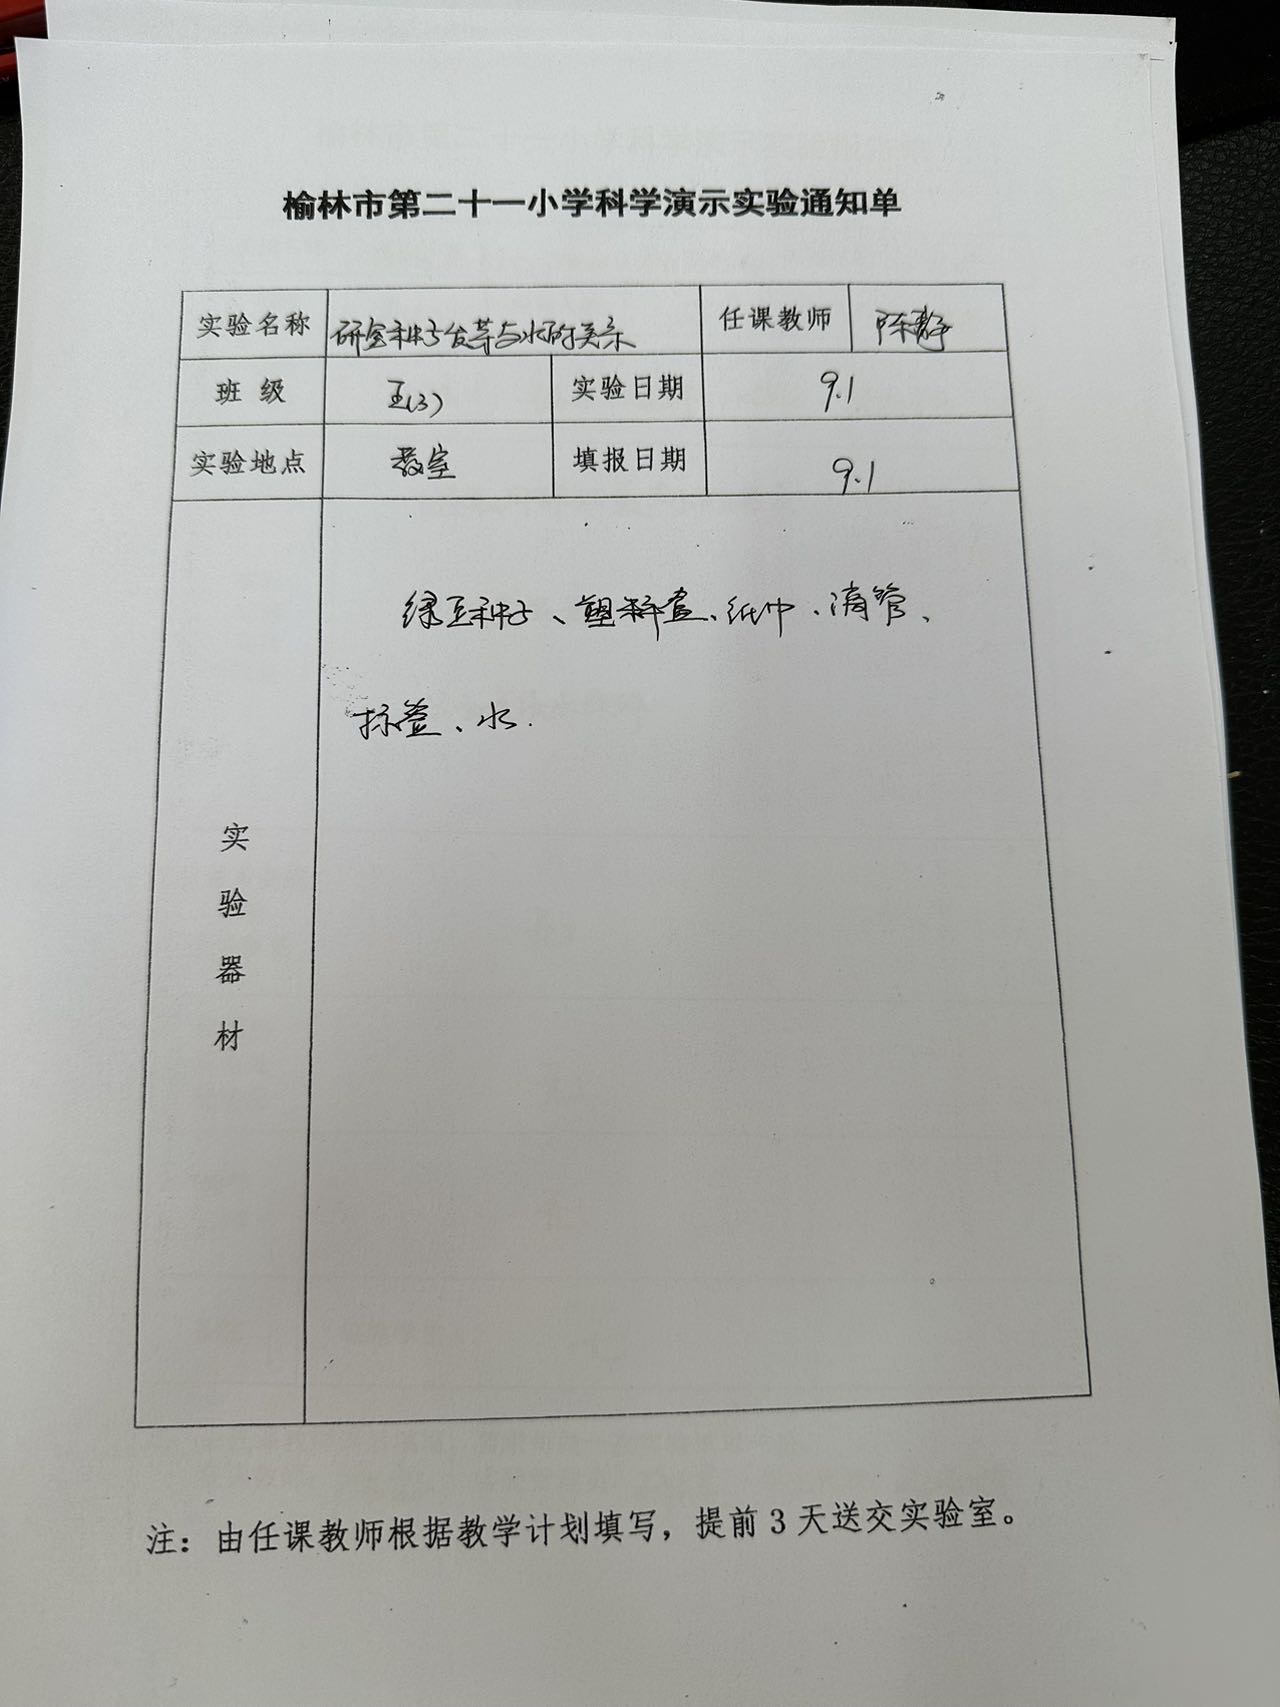 榆林市第二十一小学科学演示实验通知单
实验名称 研究种子发芽与水的关系 任课教师 陈静
班级 五(3) 实验日期 9.1
实验地点 教室 填报日期 9.1
实验器材
绿豆种子、塑料盒、纸巾、滴管、
标签、水.
注：由任课教师根据教学计划填写，提前3天送交实验室。